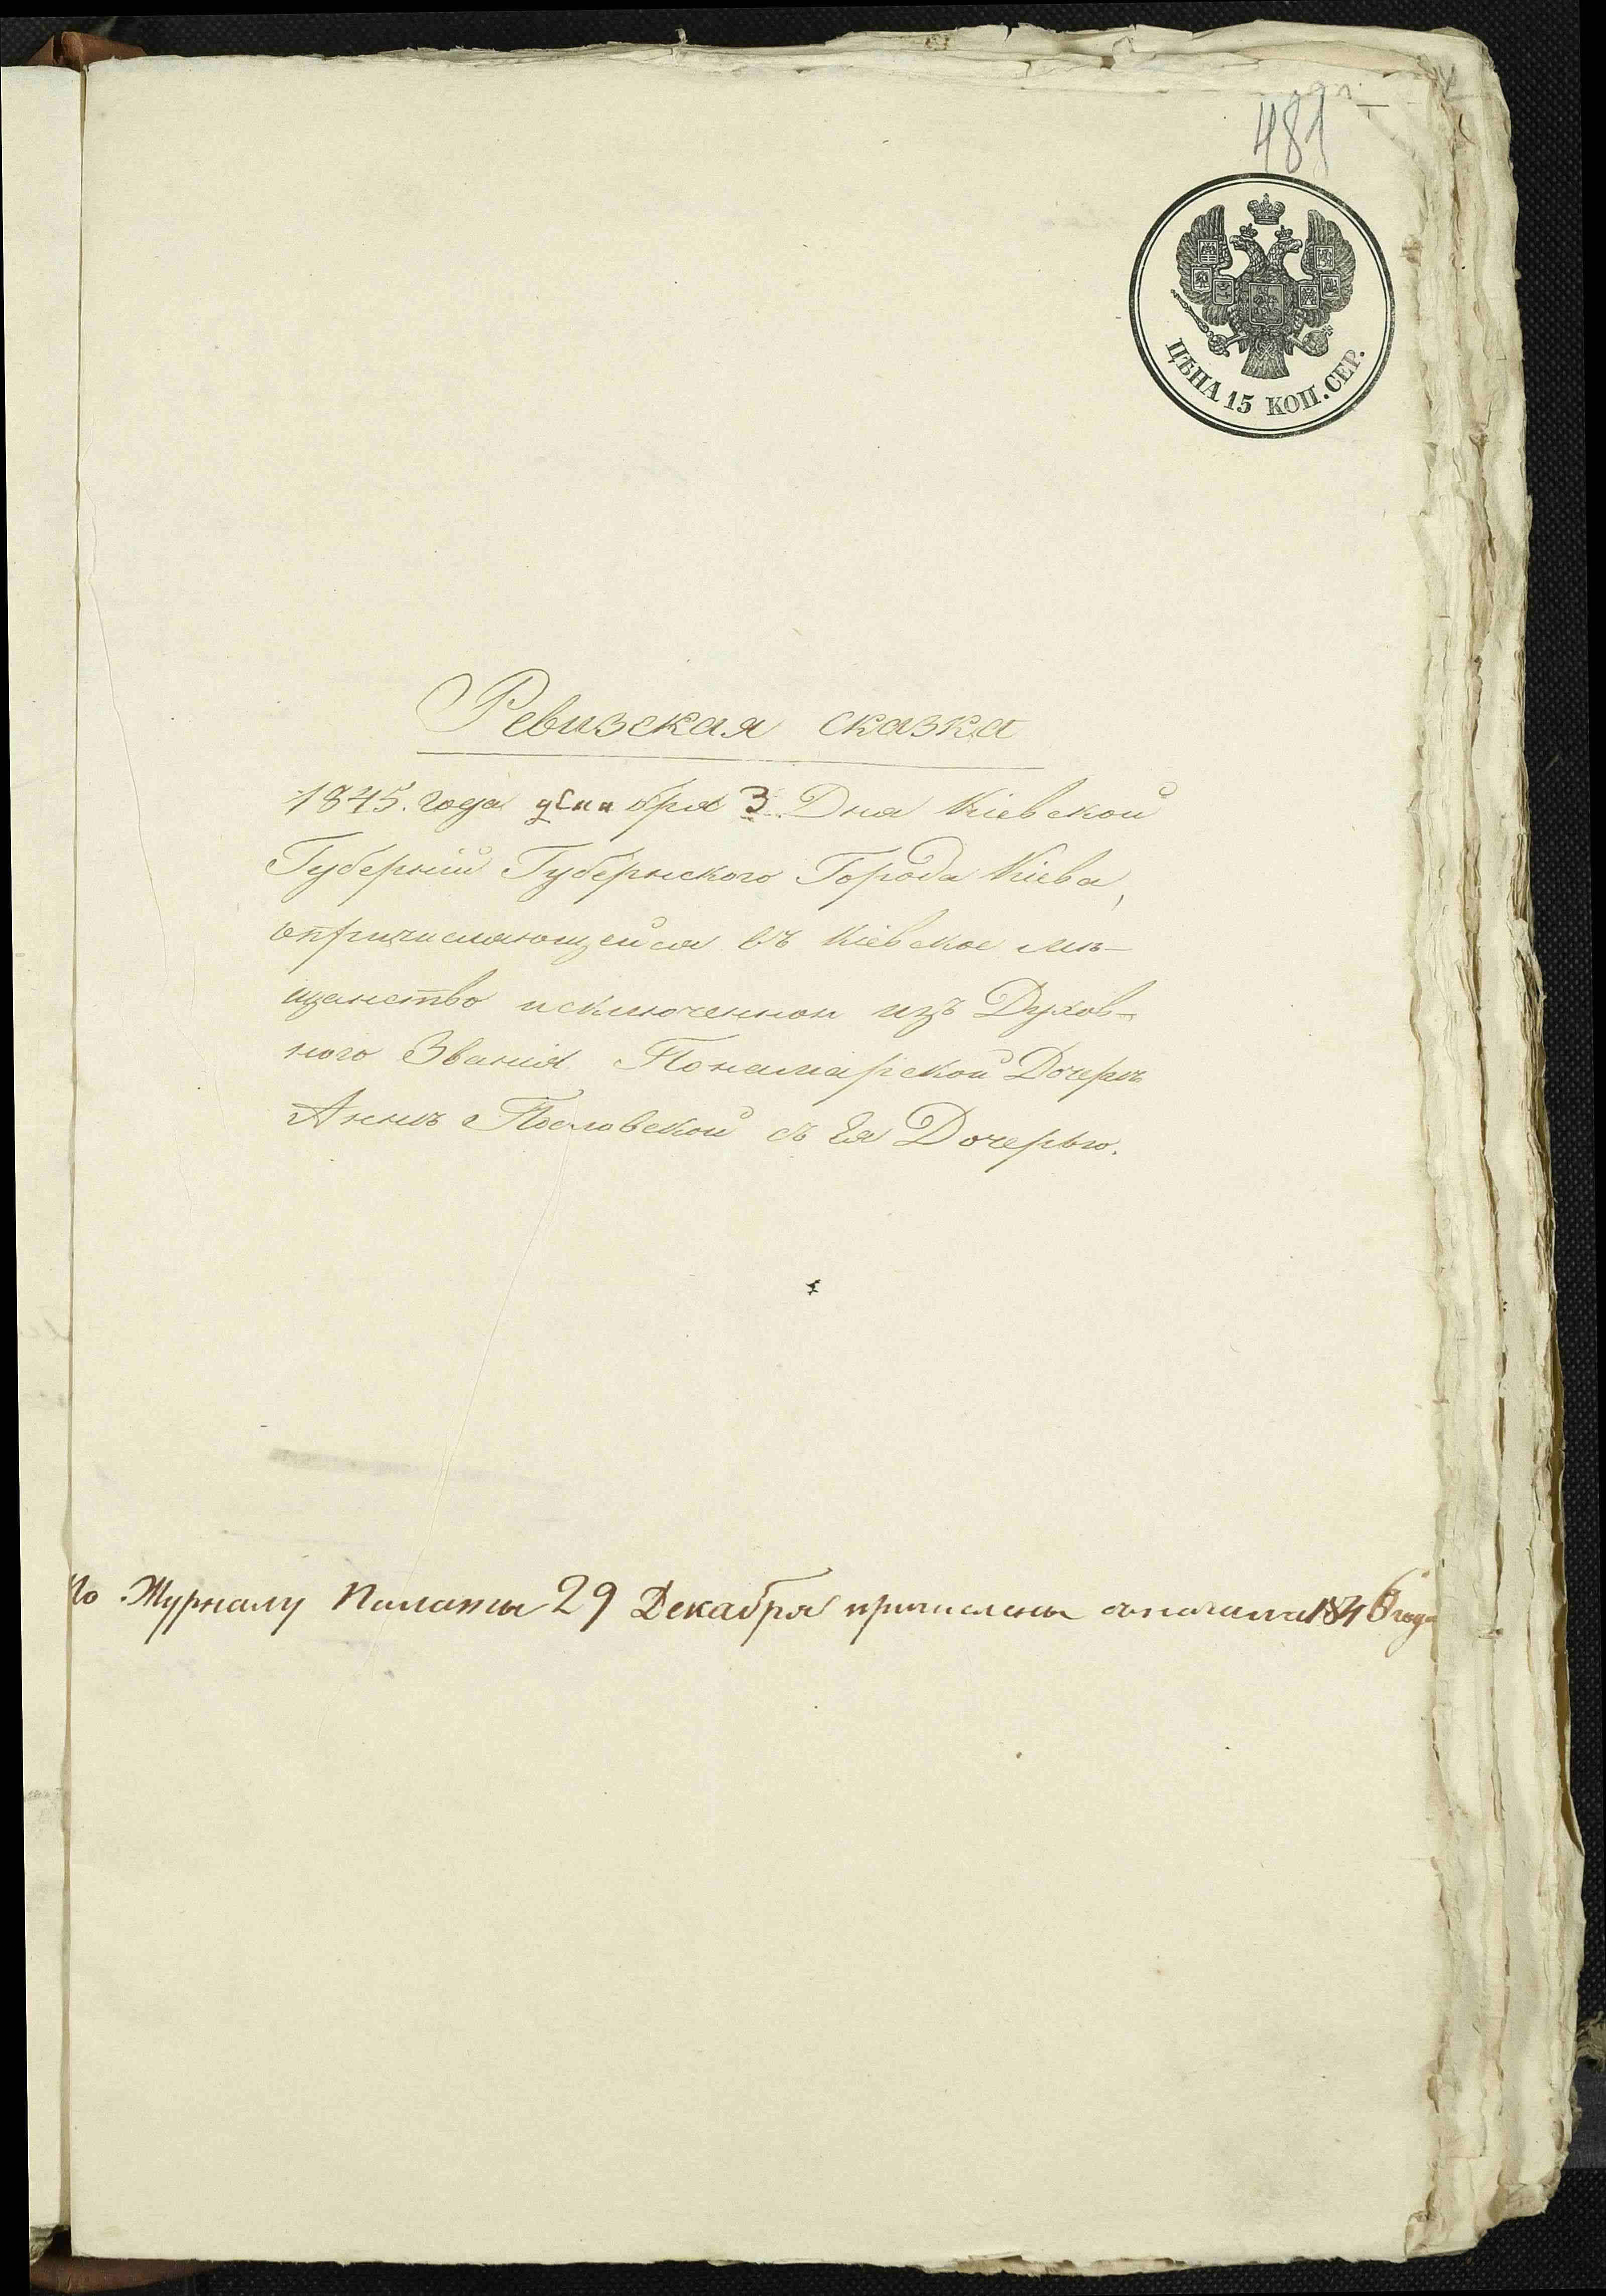 481
ЦѢНА 15 КОП. СЕР.
Ревизская сказка
1845. года декабря 3 Дня Кіевской
Губерніи Губернского Города Кіева,
опричисляющейся въ Кіевское мѣ-
щанство исключенной изъ Духов-
ного Званія Пономарской Дочери
Аннѣ Пословской съ Ея Дочерью.
По Журналу Палаты 29 Декабря причислены съ начала 1846 года